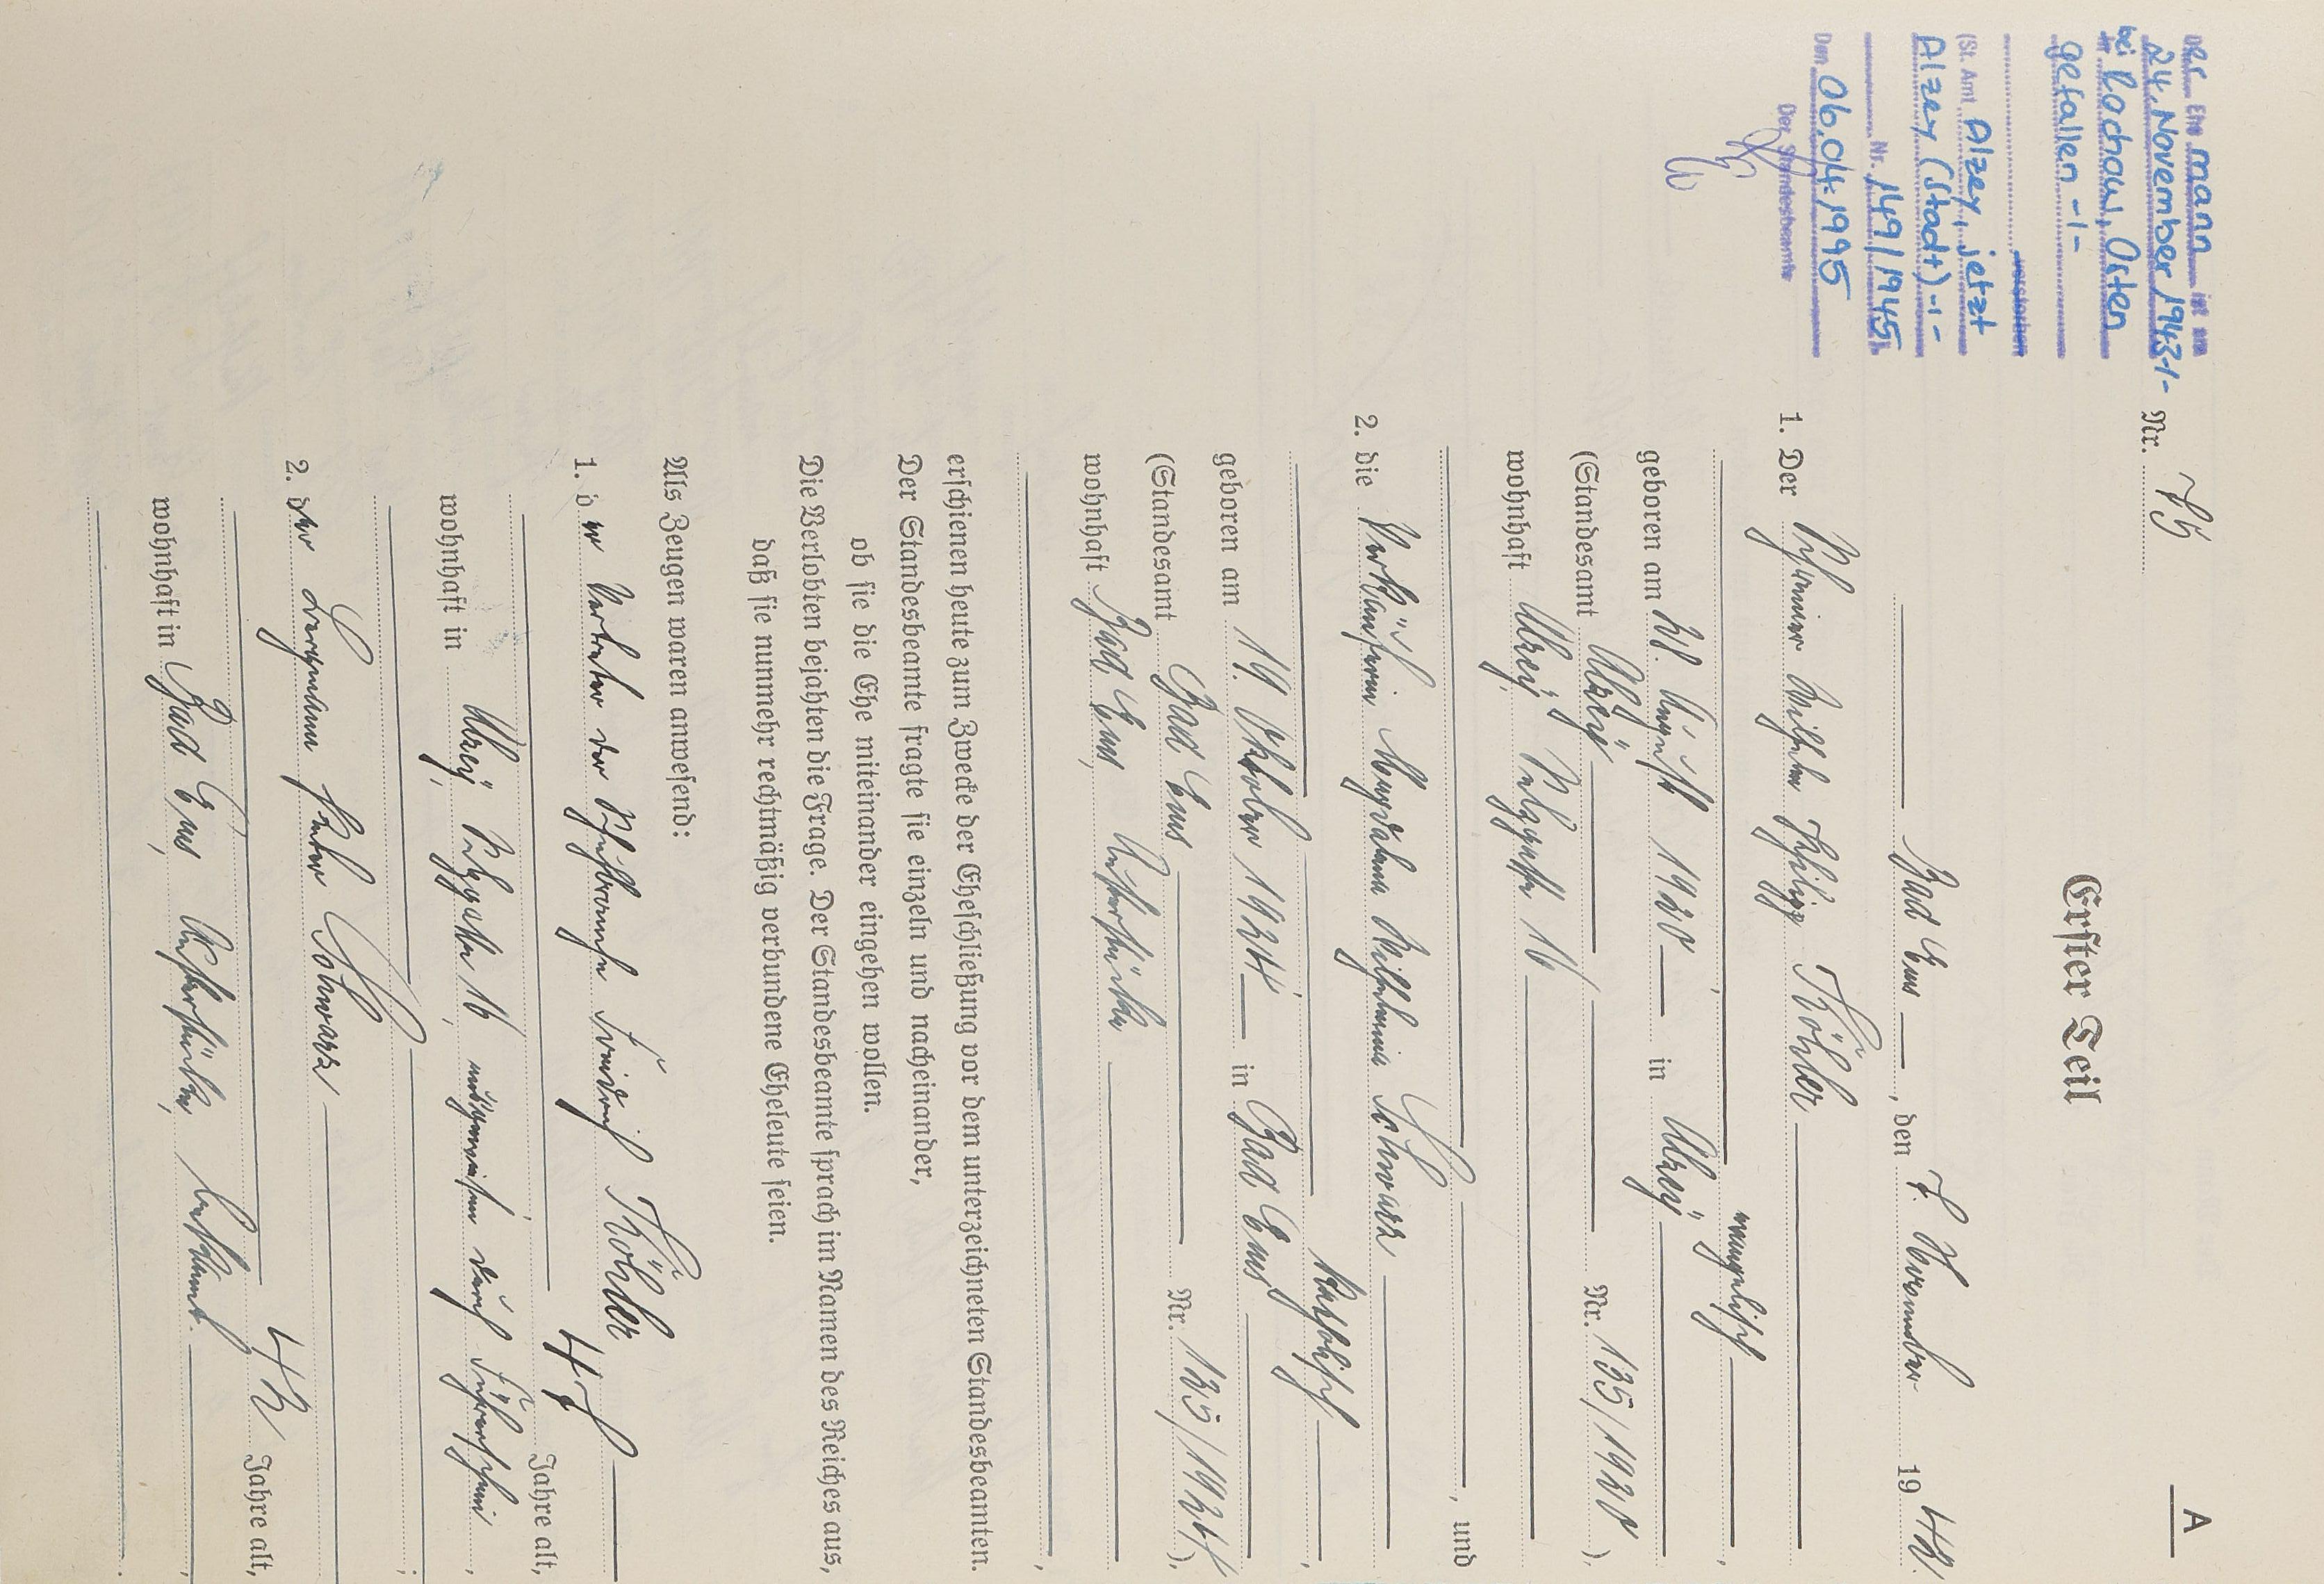 A
Nr. 75
Der Ehe mann ist am
24. November 1943 -1-
bei Rochow, Osten
gefallen -1-
verstorben
(St. Amt Alzey, jetzt
Alzey (Stadt) -1-
Nr. 149/1945).
Den 06.04.1995
Der Standesbeamte
Erster Teil
Bad Ems, den 7. November 1942.
1. Der Wilhelm Philipp Köhler
evangelisch,
geboren am 21. August 1920 in Alzey
(Standesamt Alzey Nr. 135/1920),
wohnhaft Alzey, 16
, und
2. die Verkäuferin Magdalena Wilhelmine Schwarz
katholisch,
geboren am 19. Oktober 1924 in Bad Ems
(Standesamt Bad Ems Nr. 135/1924),
wohnhaft Bad Ems,
,
erschienen heute zum Zwecke der Eheschließung vor dem unterzeichneten Standesbeamten.
Der Standesbeamte fragte sie einzeln und nacheinander,
ob sie die Ehe miteinander eingehen wollen.
Die Verlobten bejahten die Frage. Der Standesbeamte sprach im Namen des Reiches aus,
daß sie nunmehr rechtmäßig verbundene Eheleute seien.
Als Zeugen waren anwesend:
1. der Vertreter der Friedrich Köhler
47 Jahre alt,
wohnhaft in Alzey, 16, ausgewiesen durch Führerschein,
;
2. der Bergmann Peter Schwarz
42 Jahre alt,
wohnhaft in Bad Ems, bekannt.
.